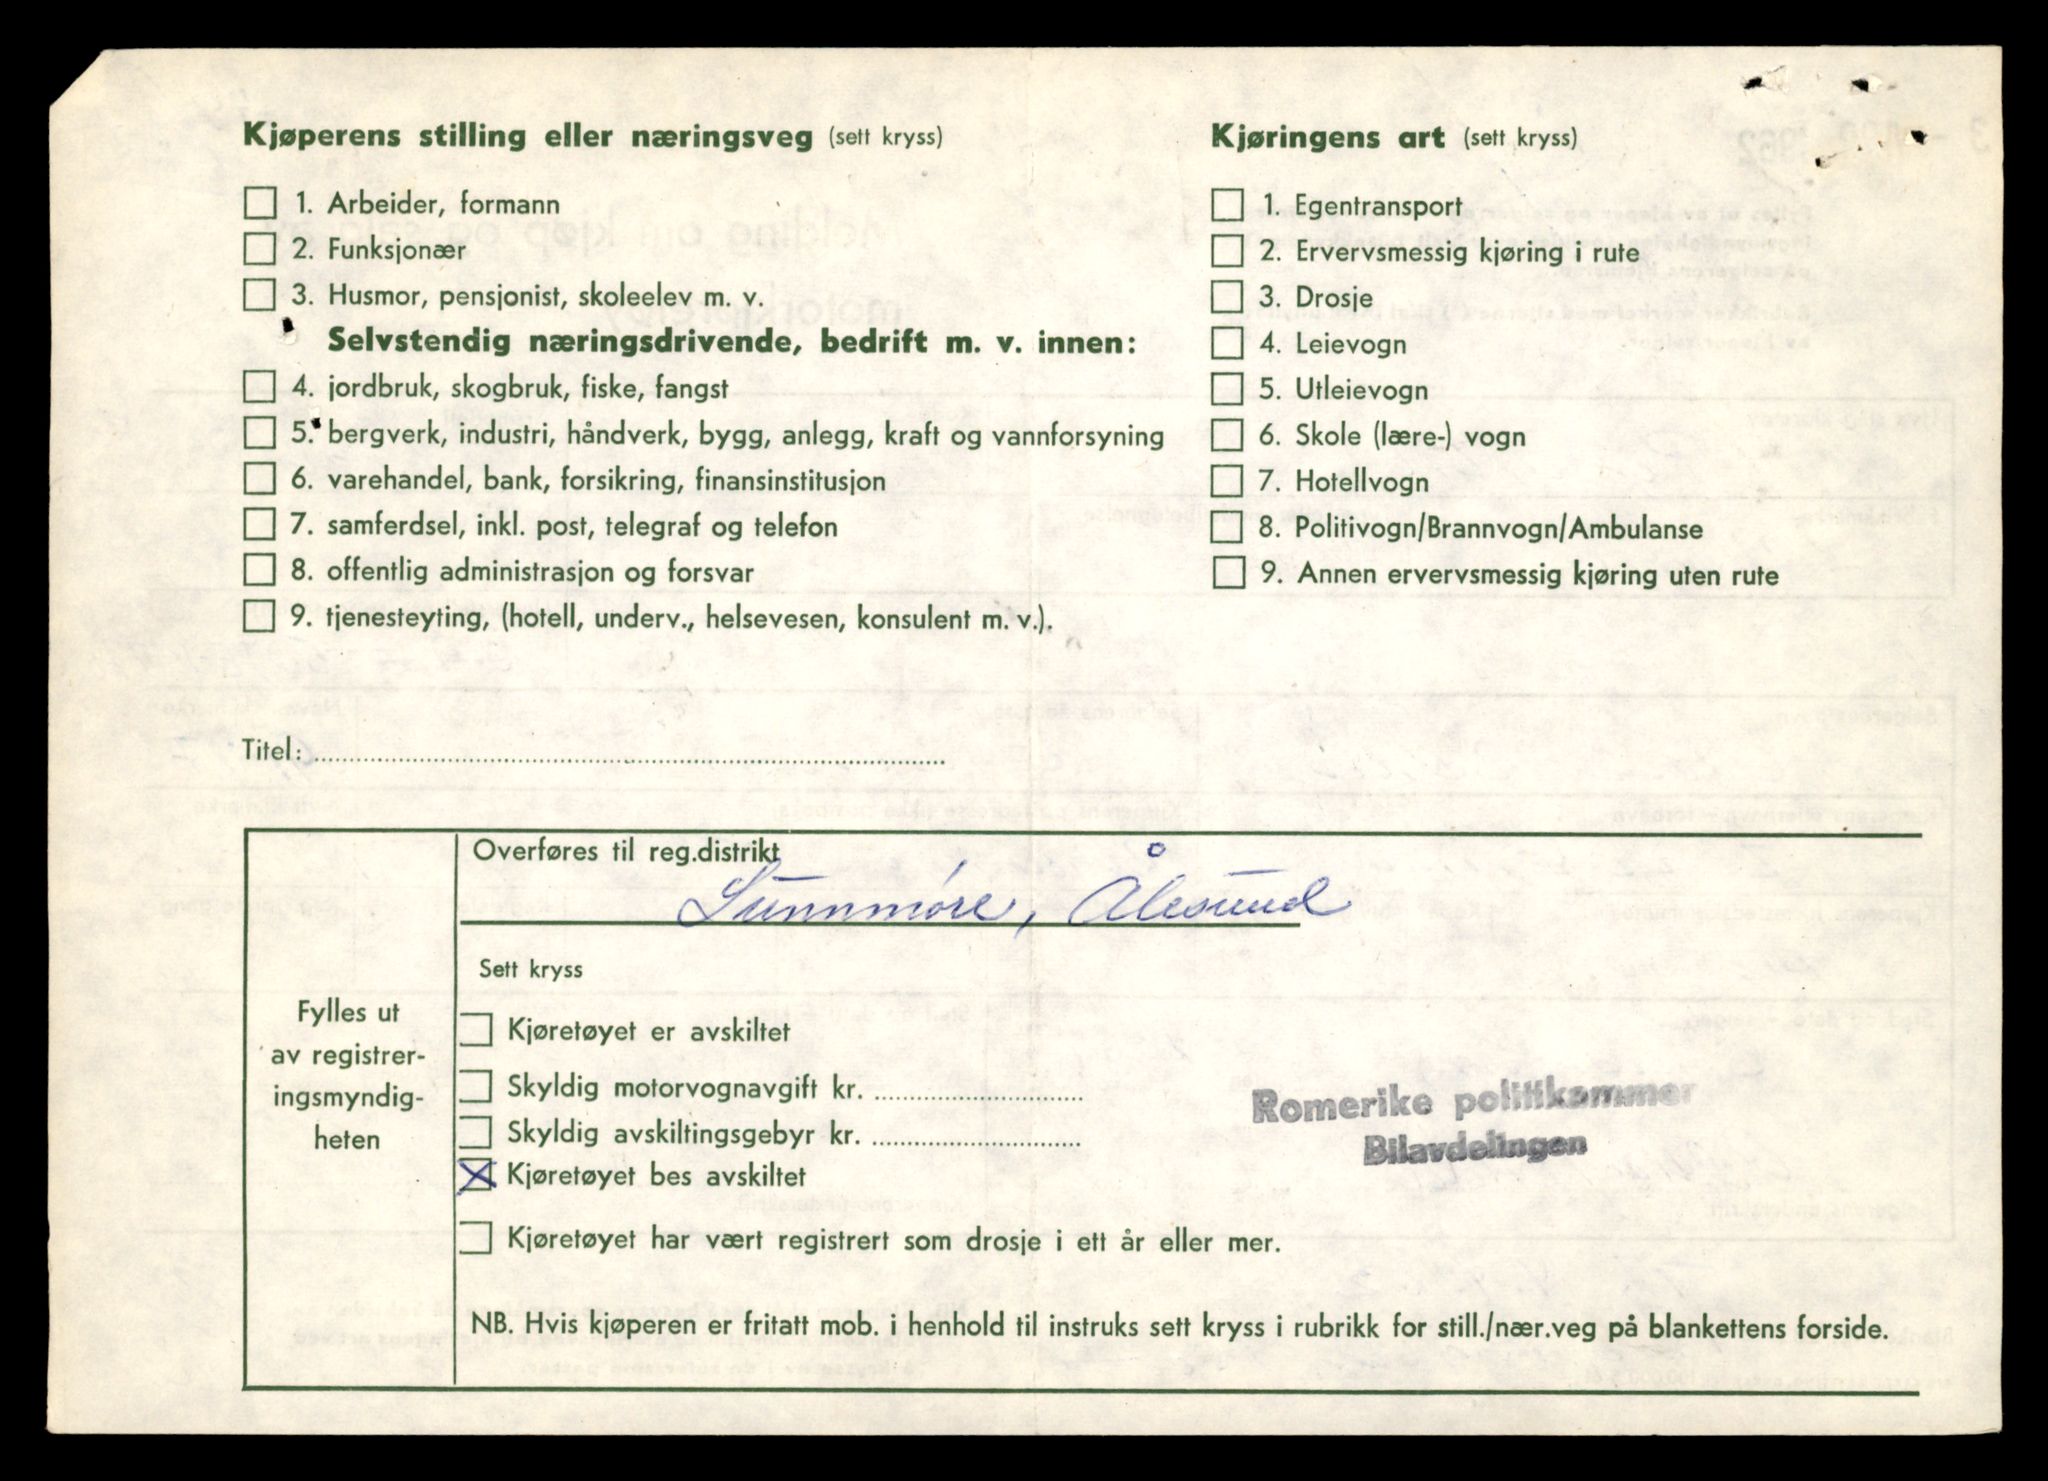 Kjøperens stilling eller næringsveg (sett kryss)
1. Arbeider, formann
2. Funksjonær
3. Husmor, pensjonist, skoleelev m. v.
Selvstendig næringsdrivende, bedrift m. v. innen:
4. jordbruk, skogbruk, fiske, fangst
5. bergverk, industri, håndverk, bygg, anlegg, kraft og vannforsyning
6. varehandel, bank, forsikring, finansinstitusjon
7. samferdsel, inkl. post, telegraf og telefon
8. offentlig administrasjon og forsvar
9. tjenesteyting, (hotell, underv., helsevesen, konsulent m. v.).
Kjøringens art (sett kryss)
1. Egentransport
2. Ervervsmessig kjøring i rute
3. Drosje
4. Leievogn
5. Utleievogn
6. Skole (lære-) vogn
7. Hotellvogn
8. Politivogn/Brannvogn/Ambulanse
9. Annen ervervsmessig kjøring uten rute
Titel:
Fylles ut
av registrer-
ingsmyndig-
heten
Overføres til reg.distrikt
Sunnmøre, Ålesund
Sett kryss
Kjøretøyet er avskiltet
Skyldig motorvognavgift kr.
Skyldig avskiltingsgebyr kr.
Kjøretøyet bes avskiltet
Kjøretøyet har vært registrert som drosje i ett år eller mer.
Romerike politikammer
Bilavdelingen
NB. Hvis kjøperen er fritatt mob. i henhold til instruks sett kryss i rubrikk for still./nær.veg på blankettens forside.